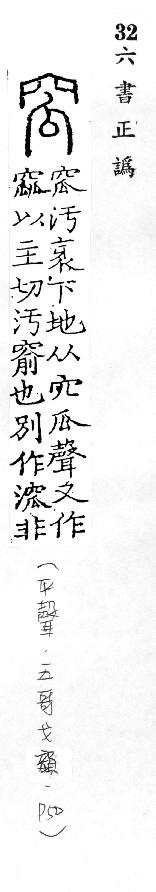 32 六書正譌
窊
窊汚衺下地从穴瓜聲又作
窳以主切汚窬也別作溛非
(平聲.五哥戈韻.P50)